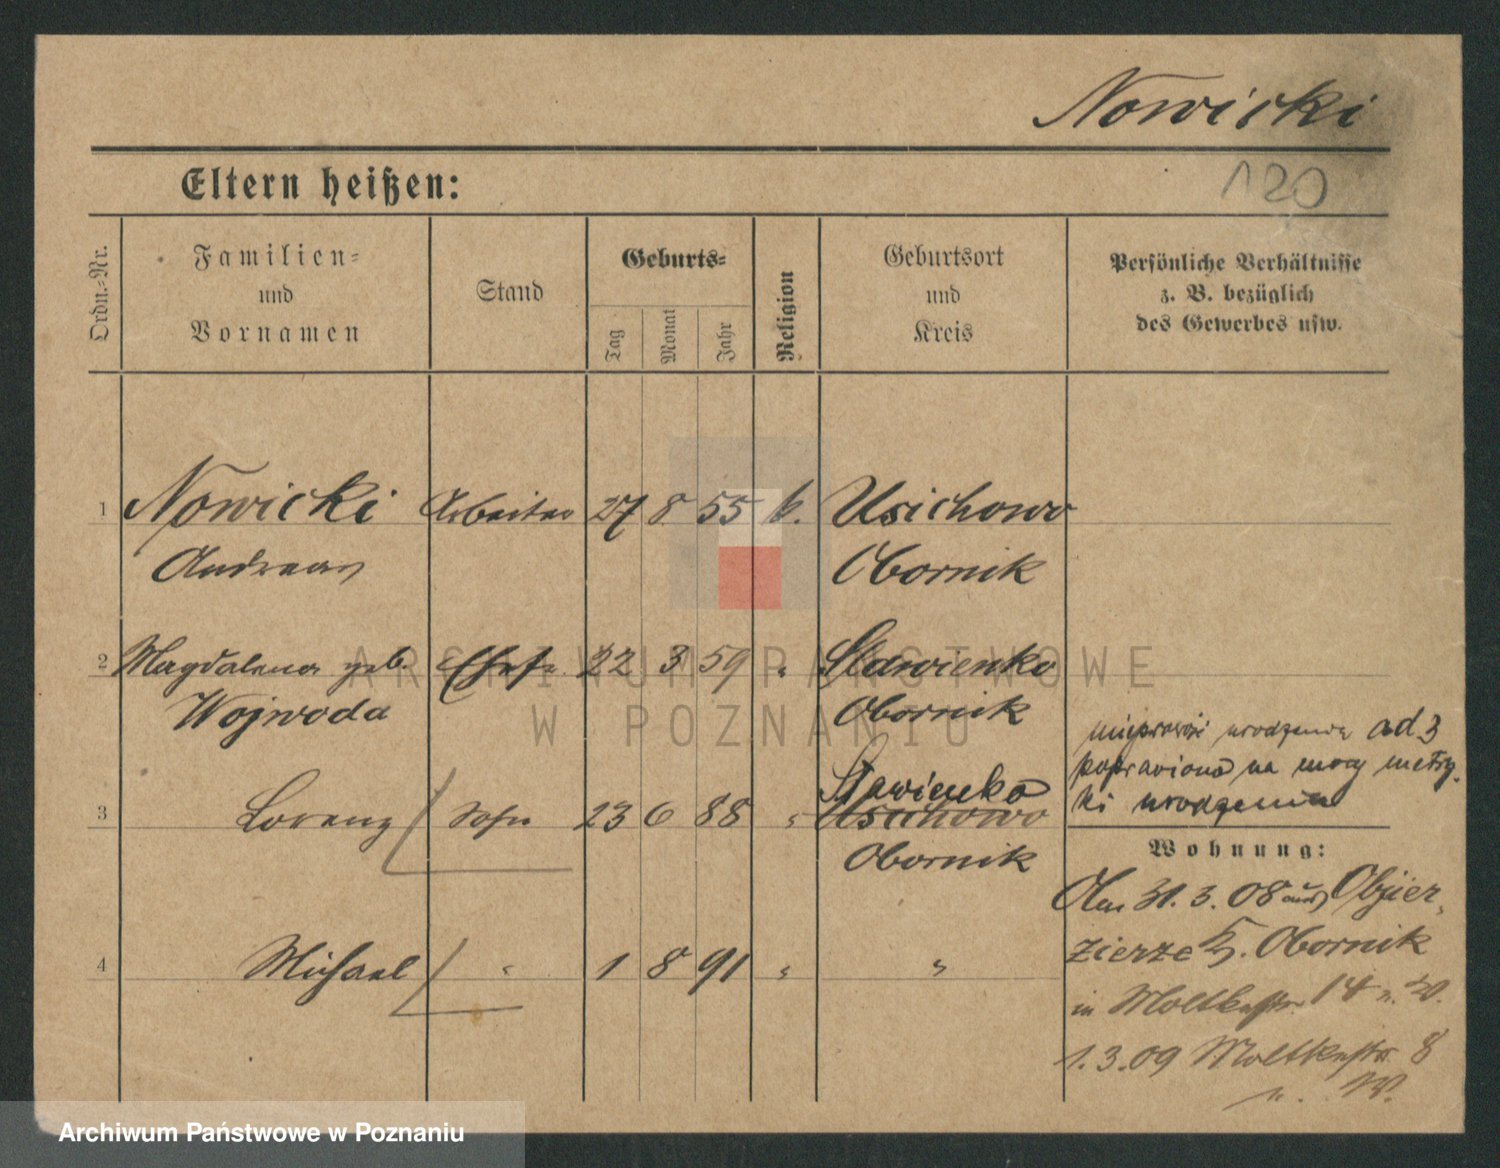 Nowicki
120
Eltern heißen:
Ordn.-Nr.
Familien-
und
Vornamen
Stand
Geburts-
Tag
Monat
Jahr
Religion
Geburtsort
und
Kreis
Persönliche Verhältnisse
z. B. bezüglich
des Gewerbes usw.
1 Nowicki Arbeiter 27 8 55 k. Usichowo
Andreas Obornik
2 Magdalena geb. Ehefr. 22 3 59 " Slawienko
Wojwoda Obornik
Sławienko
3 Lorenz Sohn 23 6 88 " Usichowo
Obornik
4 Michael " 1 8 91 " "
miejscowość urodzenia ad. 3
poprawiono na mocy metry-
ki urodzenia
Wohnung:
Am 31. 3. 08 aus Objer-
zierze K. Obornik
in Moltkestr. 14
1.3.09 Moltkestr 8
ARCHIWUM PAŃSTWOWE
W POZNANIU
Archiwum Państwowe w Poznaniu